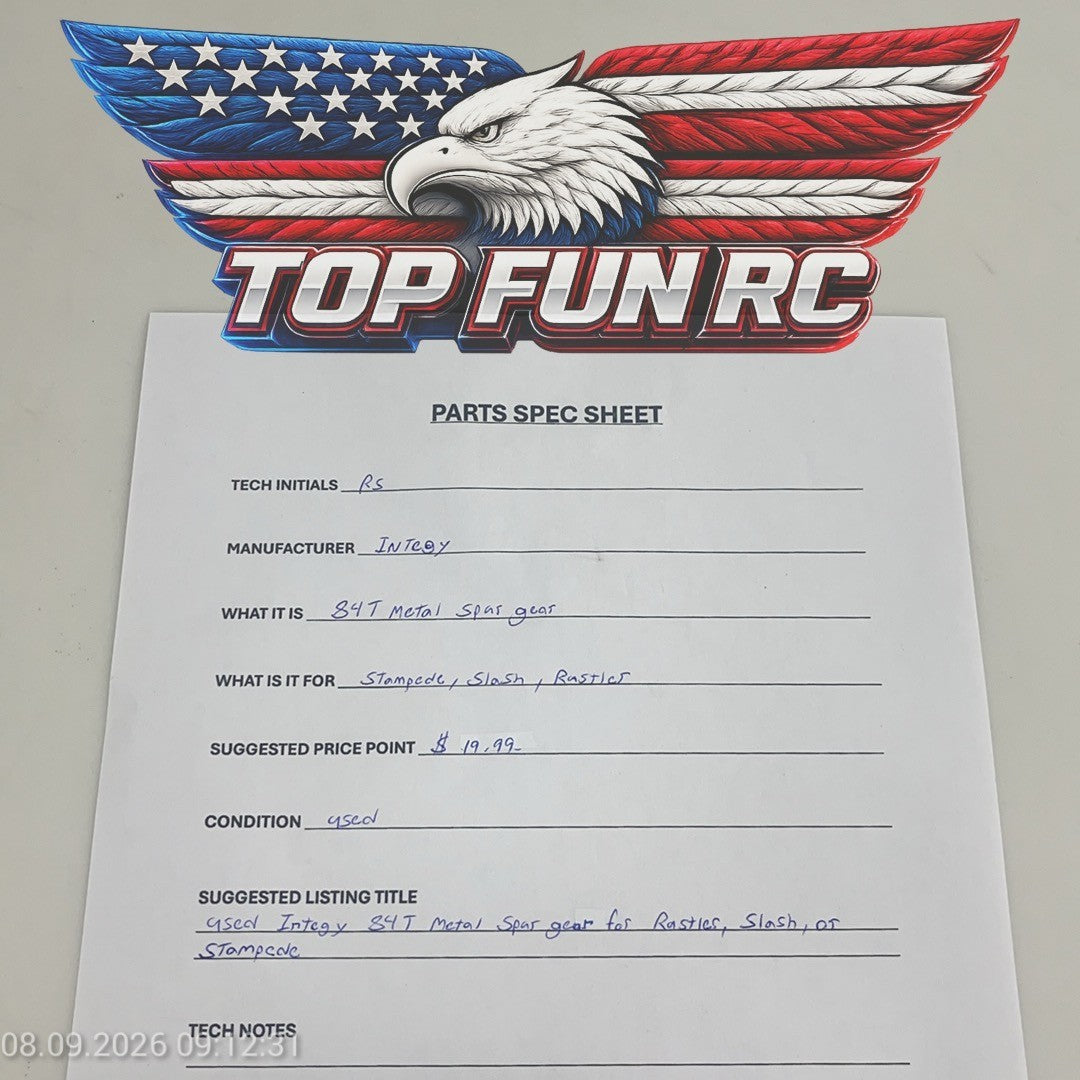 TOP FUN RC
PARTS SPEC SHEET
TECH INITIALS RS
MANUFACTURER INTEGY
WHAT IT IS 84T Metal Spur gear
WHAT IS IT FOR Stampede, Slash, Rustler
SUGGESTED PRICE POINT $ 19.99
CONDITION used
SUGGESTED LISTING TITLE
used Integy 84T Metal Spur gear for Rustler, Slash, or
Stampede
TECH NOTES
08.09.2026 09:12:31